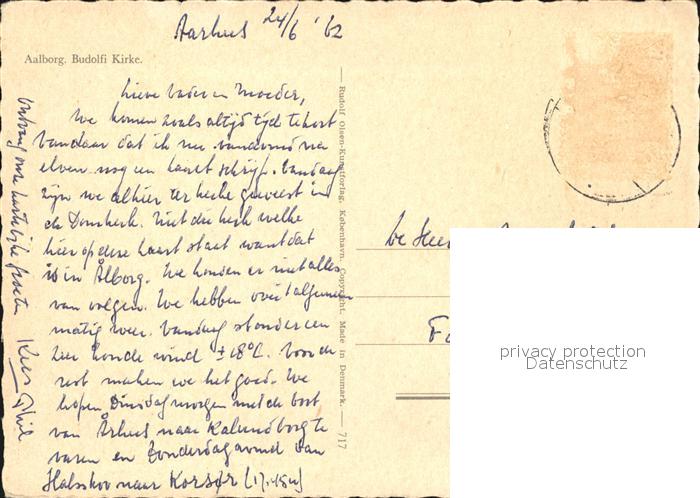 Aarhus 24/6 '62
Aalborg. Budolfi Kirke.
Lieve Vader en Moeder,
We komen zoals altijd tijd te kort
vandaar dat ik nu vanavond na
elven nog een kaart schrijf. Vandaag
zijn we alhier ter kerke geweest in
de Domkerk. Niet die kerk welke
hier op deze kaart staat want dat
is in Ålborg. We konden er niet alles
van volgen. We hebben over 't algemeen
matig weer. Vandaag stond er een
zeer koude wind ± 18°C. Voor de
rest maken we het goed. We
hopen Dinsdagmorgen met de boot
van Århus naar Kalundborg te
varen en Donderdagavond van
Halsskov naar Korsør
Ontvang onze hartelijke groeten
Rudolf Olsen-Kunstforlag, København. Copyright. Made in Denmark.
717
De Heer
privacy protection
Datenschutz